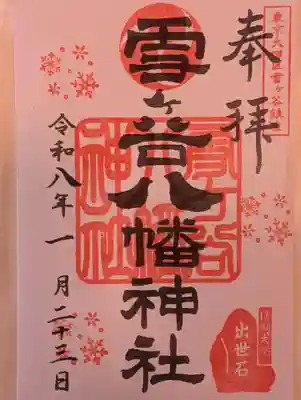 東京大田区雪ヶ谷鎮
奉拝
雪ヶ谷八幡神社
雪ヶ谷
神社
令和八年一月二十三日
出世石